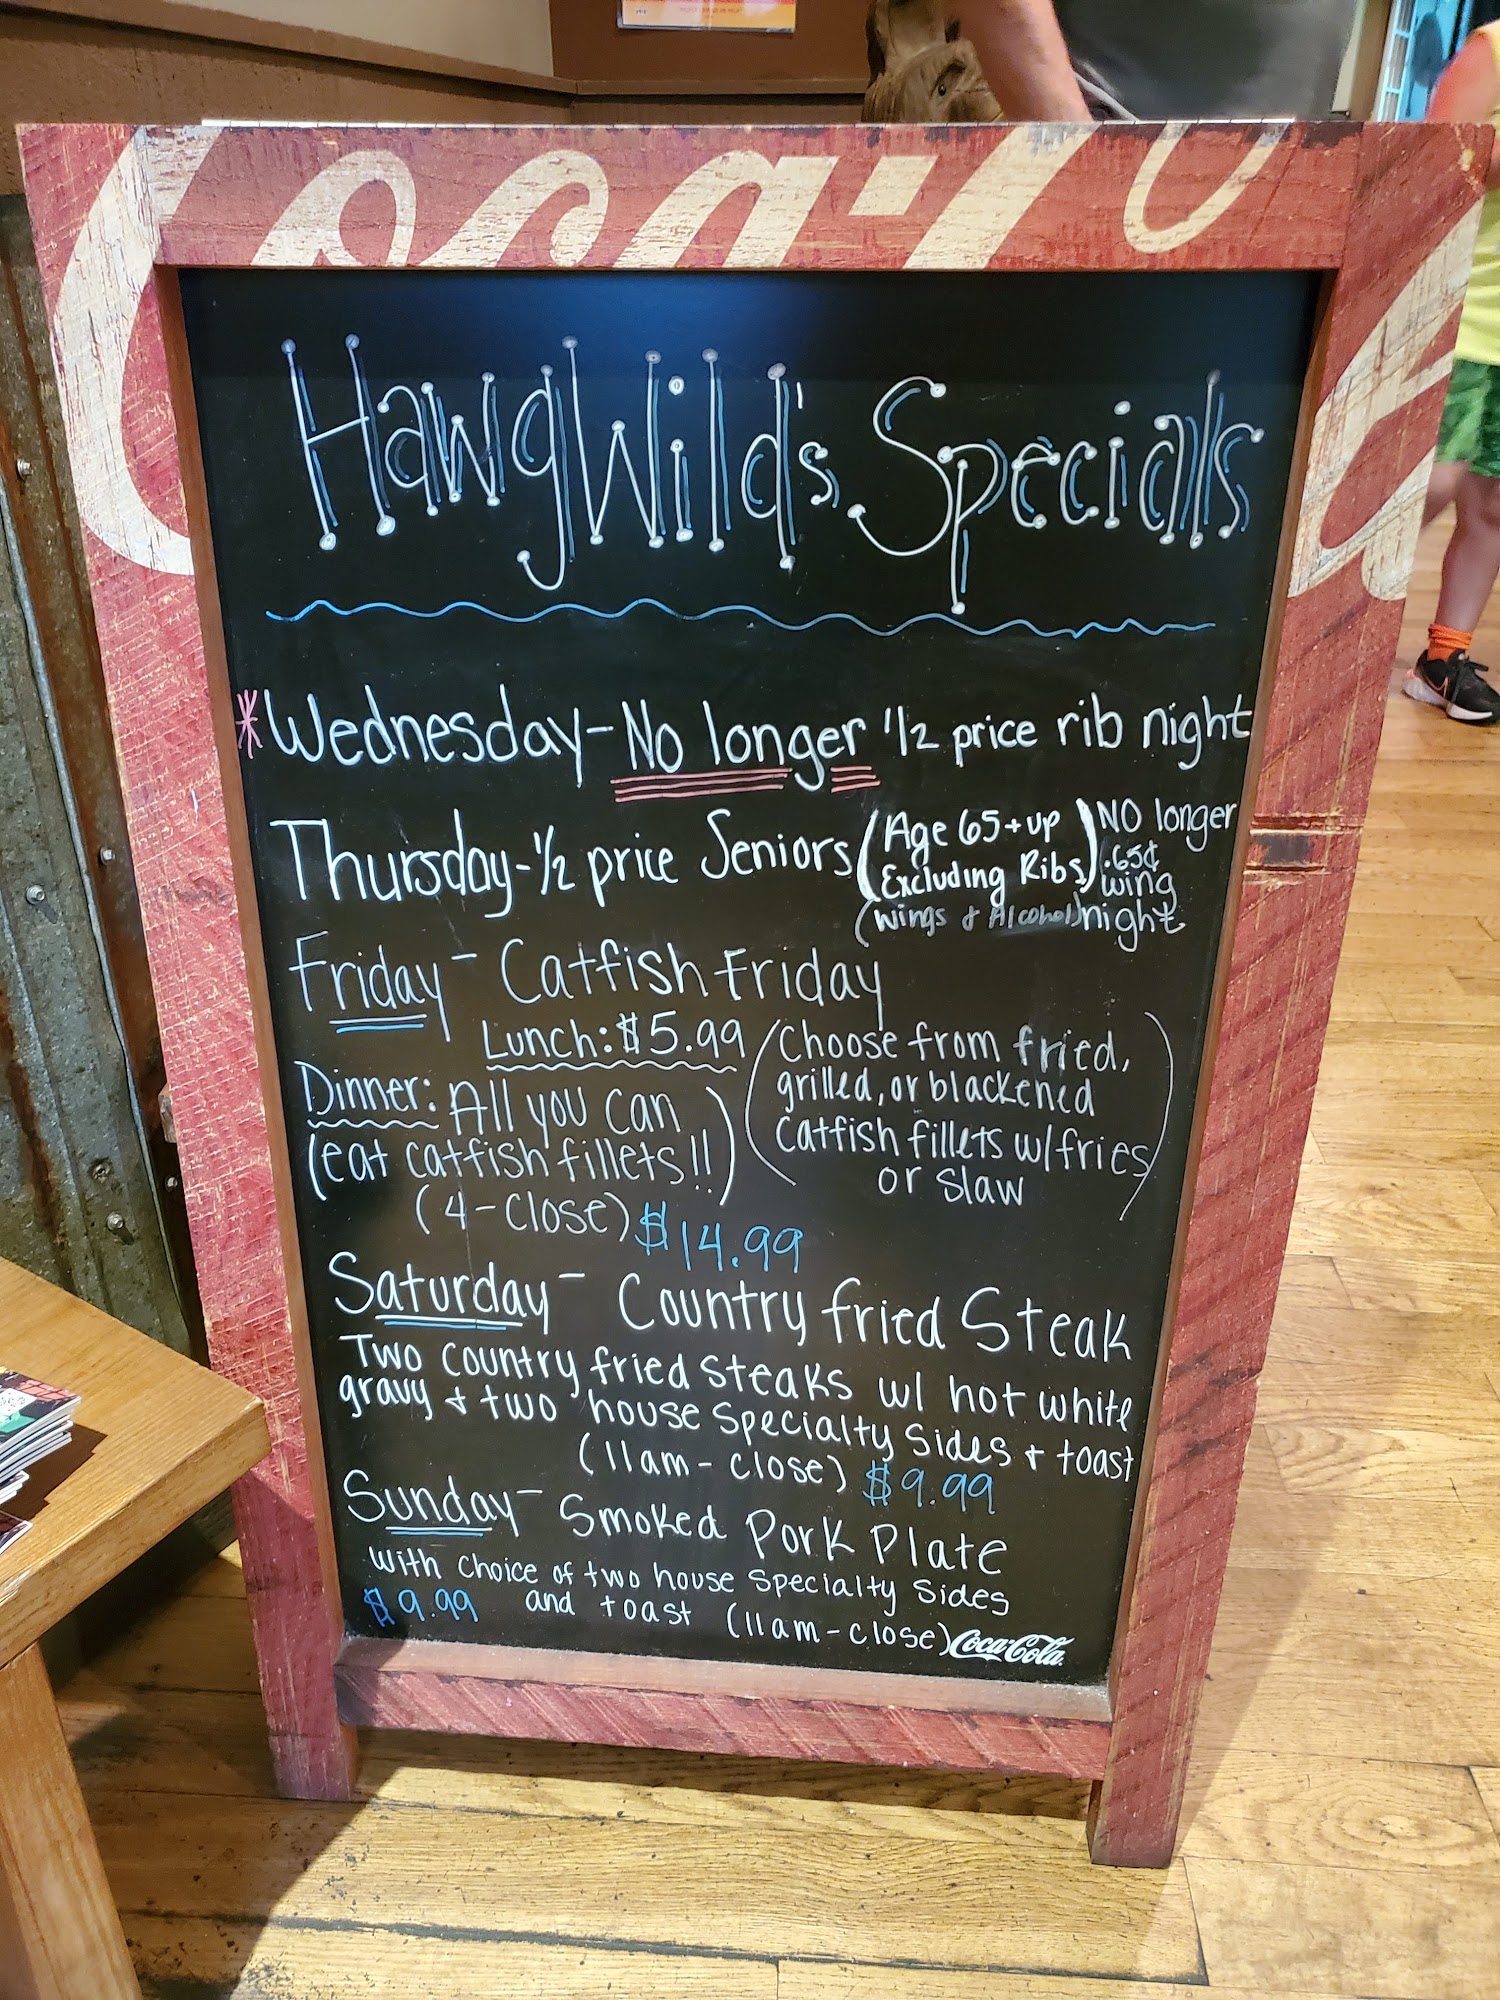 Coca-Cola
HawgWild's Specials
*Wednesday-No longer 1/2 price rib night
Thursday-1/2 price Seniors (Age 65+up Excluding Ribs) (Wings & Alcohol) NO longer .65¢ wing night
Friday- Catfish Friday
Lunch: $5.99 (Choose from fried, grilled, or blackened catfish fillets w/ fries or slaw)
Dinner: All you can
(eat catfish fillets!!)
(4-Close) $14.99
Saturday- Country fried Steak
Two country fried steaks w/ hot white
gravy & two house specialty sides & toast
(11am-close) $9.99
Sunday- Smoked Pork Plate
with choice of two house specialty sides
$9.99 and toast (11am-close)
Coca-Cola